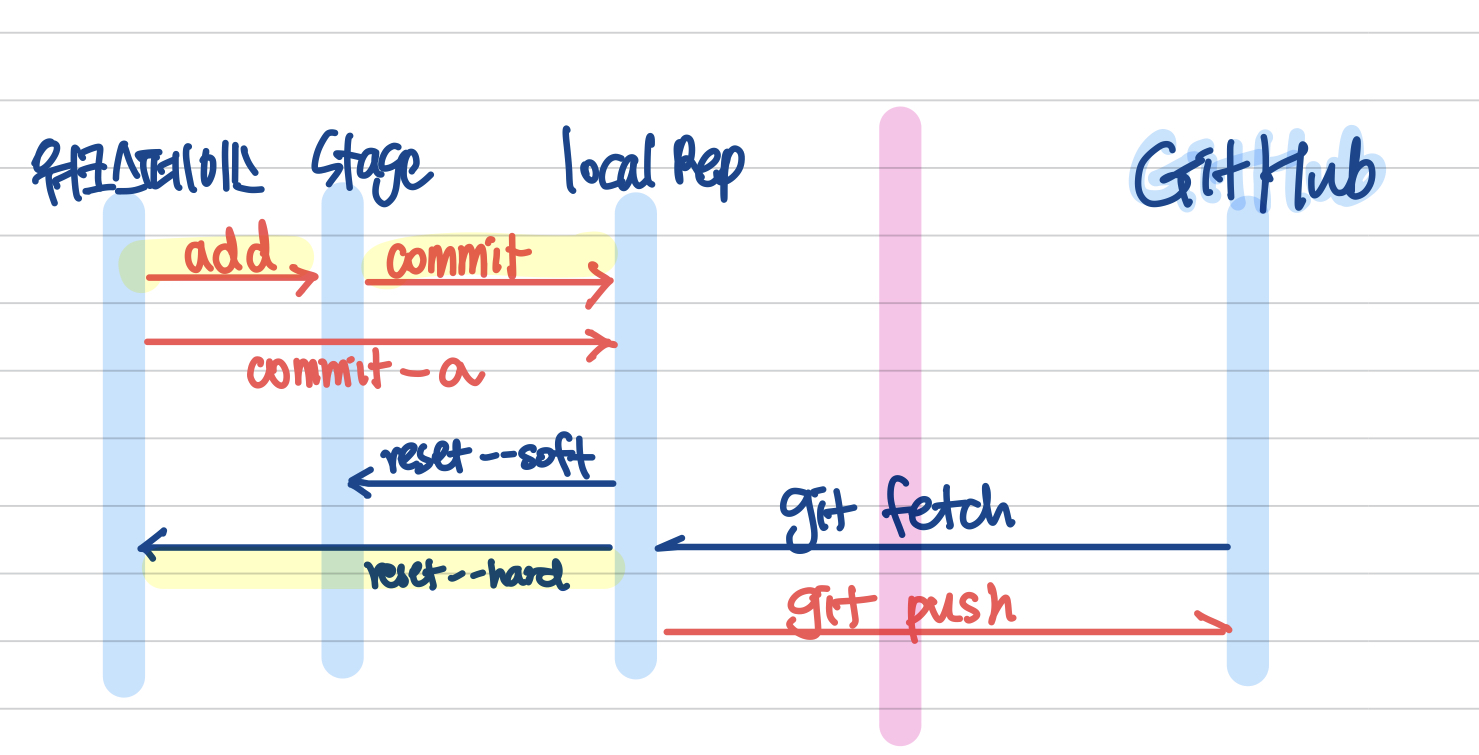 워크스페이스 Stage local Rep GitHub
add commit
commit -a
reset --soft
git fetch
reset --hard
git push